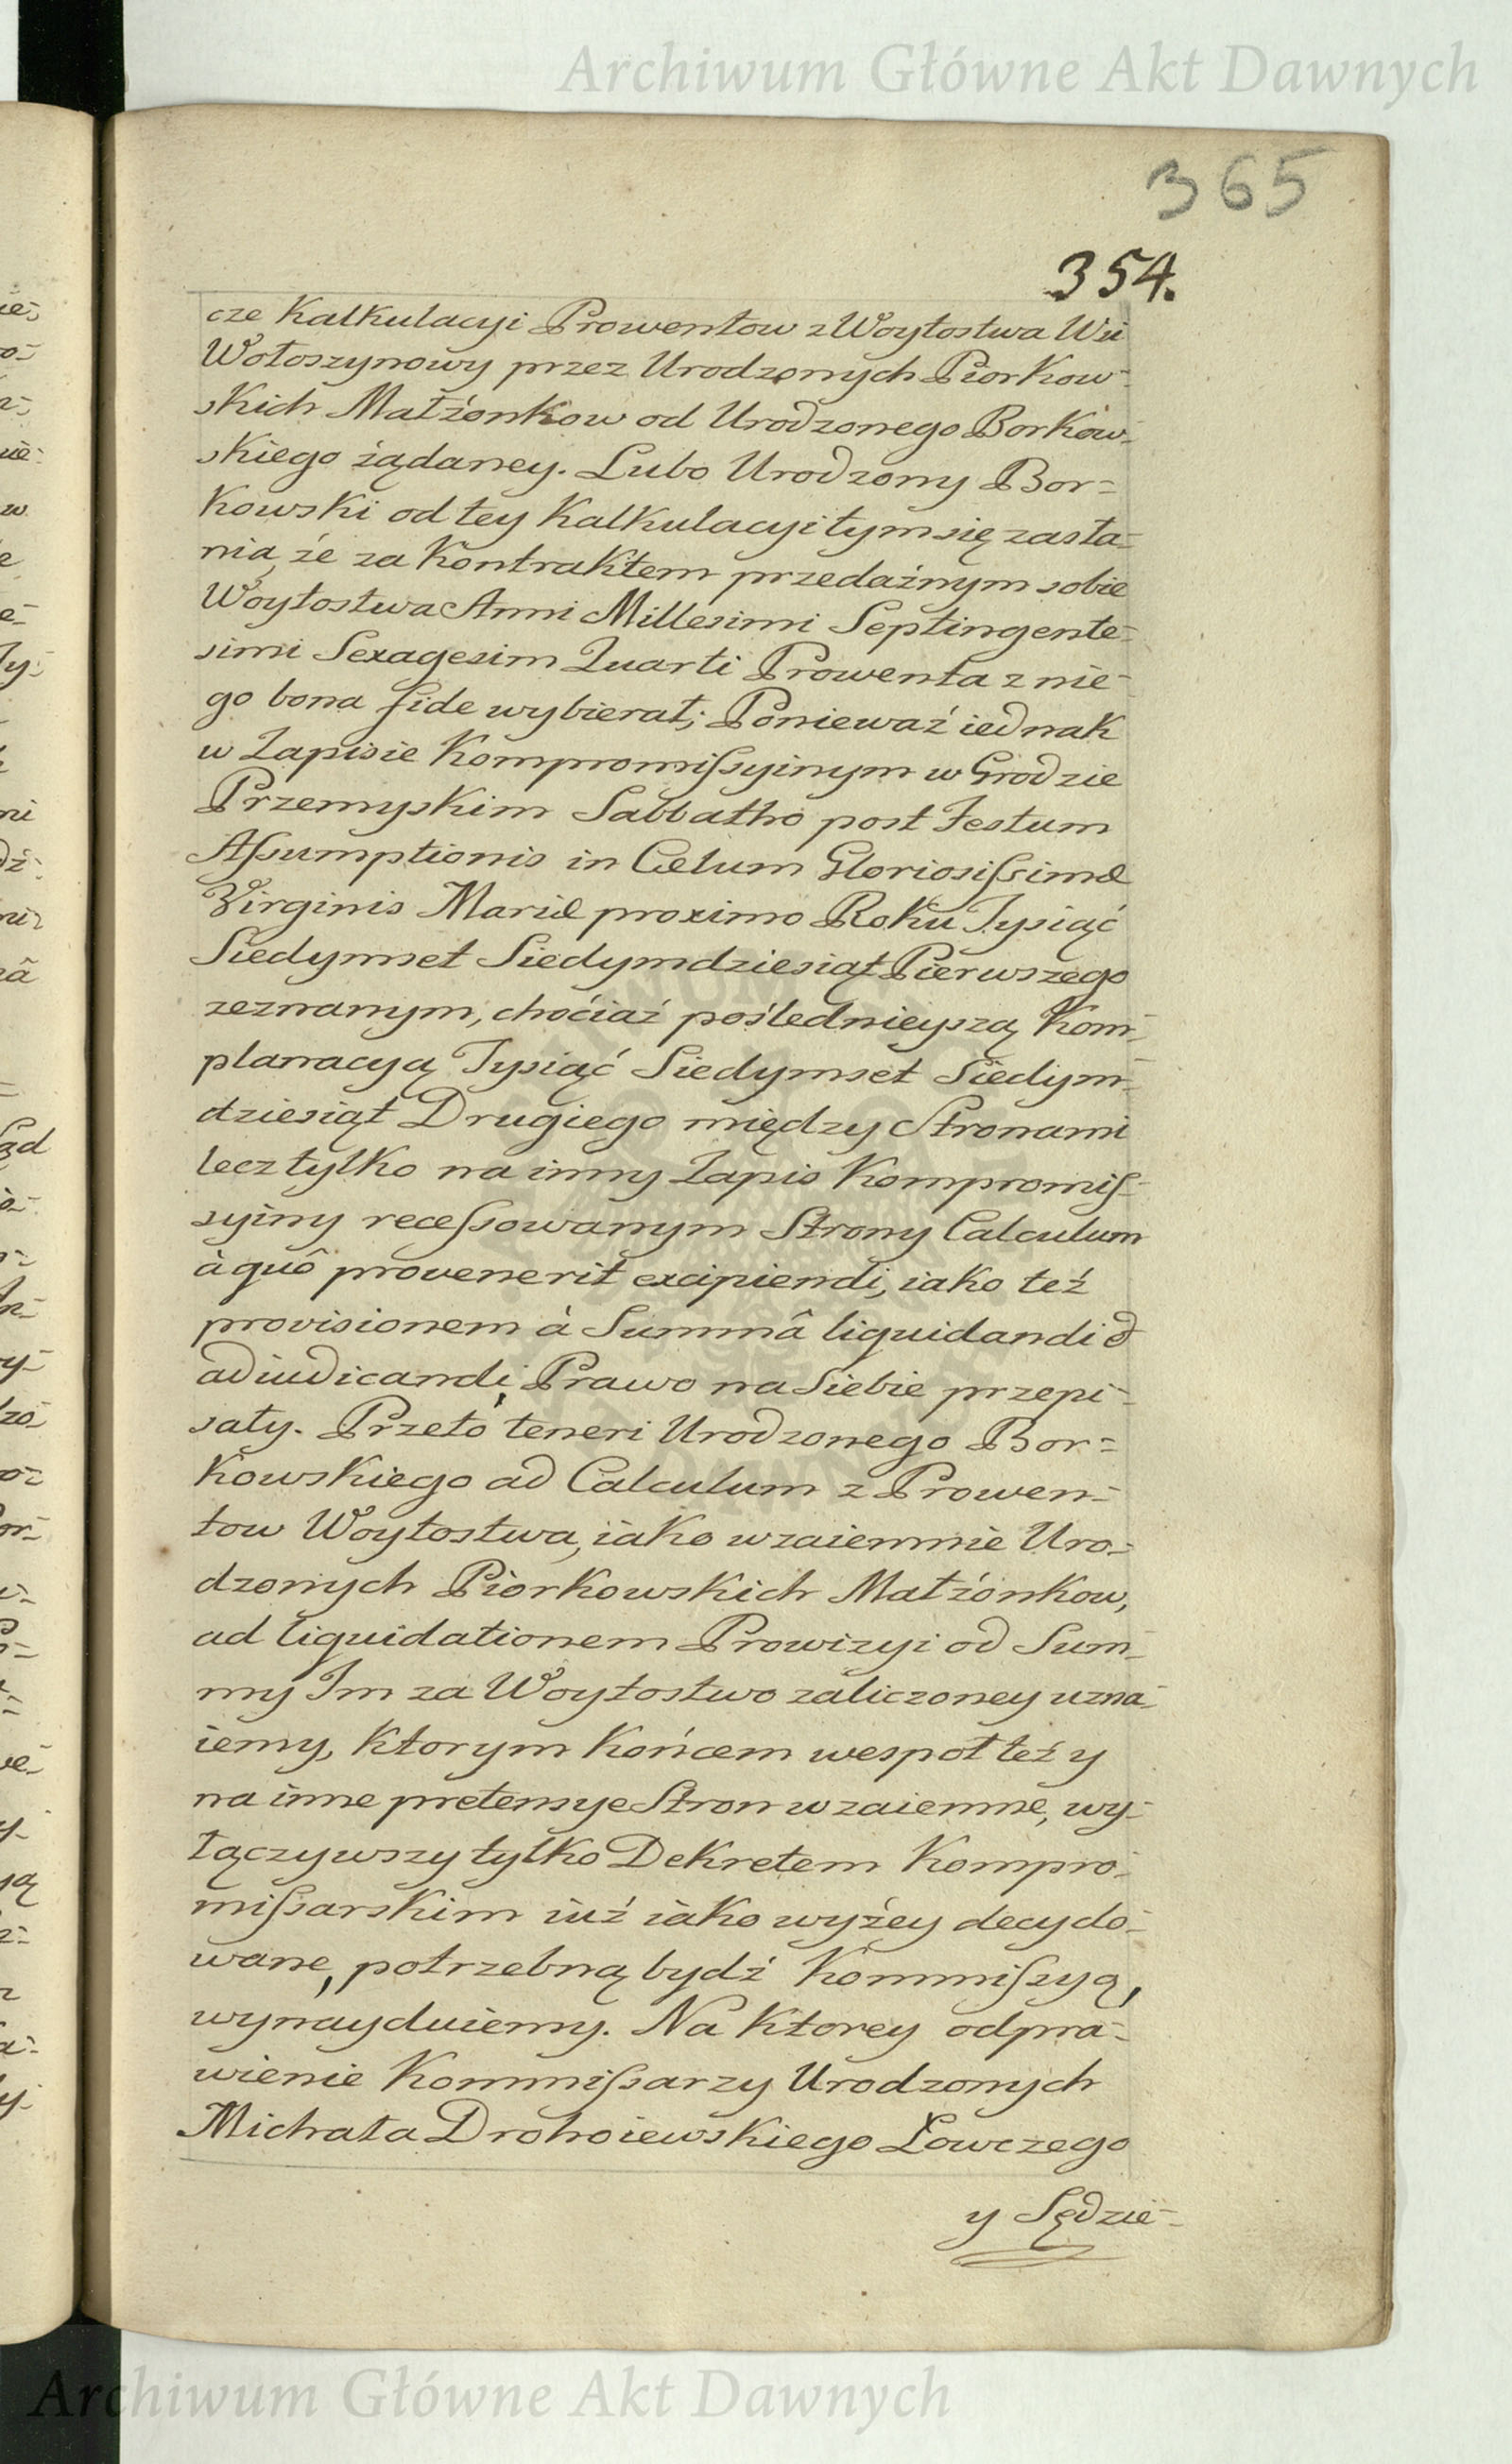 Archiwum Główne Akt Dawnych
365
354.
cze Kalkulacyi Prowentow z Woytostwa Wsi
Wołoszynowy przez Urodzonych Piorkow-
skich Małżonkow od Urodzonego Borkow-
skiego żądaney. Lubo Urodzony Bor=
kowski od tey Kalkulacyi tym się zasła-
nia, że za Kontraktem przedażnym sobie
Woytostwa Anni Millesimi Septingente-
simi Sexagesim Quarti Prowenta z nie-
go bona fide wybierał; Ponieważ iednak
w Zapisie Kompromissyinym w Grodzie
Przemyskim Sabbatho post Festum
Assumptionis in Cælum Gloriosissimæ
Virginis Mariæ proximo Roku Tysiąć
Siedymset Siedymdziesiąt Pierwszego
zeznanym, choćiaż poślednieyszą Kom-
planacyą Tysiąć Siedymset Siedym-
dziesiąt Drugiego między Stronami
lecz tylko na inny Zapis Kompromis-
syiny recessowanym Strony Calculum
à quô provenerit excipiendi, iako też
provisionem à Summâ liquidandi &
adiudicandi, Prawo na Siebie przepi-
sały. Przeto teneri Urodzonego Bor=
kowskiego ad Calculum z Prowen-
tow Woytostwa, iako wzaiemnie Uro-
dzonych Piorkowskich Małżonkow,
ad liquidationem Prowizyi od Sum-
my Im za Woytostwo zaliczoney uzna-
iemy, Ktorym Końcem wespoł też y
na inne pretensye Stron wzaiemne, wy-
łączywszy tylko Dekretem Kompro-
missarskim iuż iako wyżey decydo-
wane, potrzebną bydź Kommissyą,
wynayduiemy. Na Ktorey odpra-
wienie Kommissarzy Urodzonych
Michała Drohoiewskiego Łowczego
y Sędzie-
Archiwum Główne Akt Dawnych